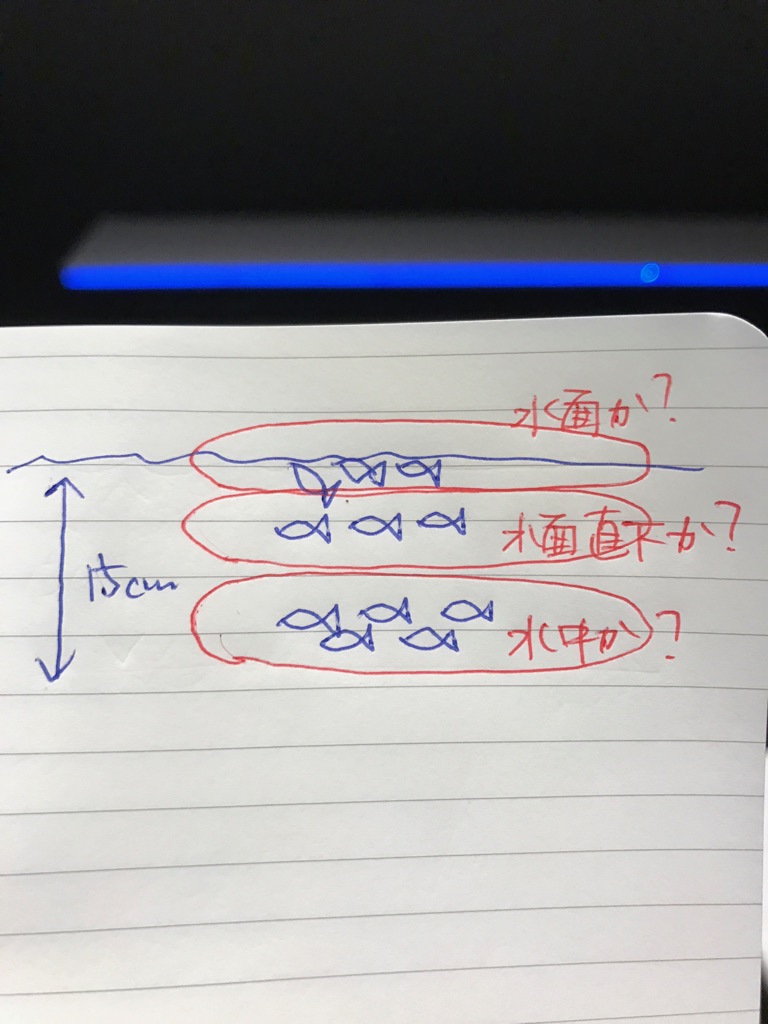 水面か?
水面直下か?
15cm
水中か?